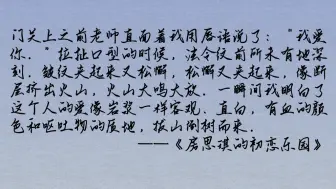 门关上之前老师直面着我用唇语说了：“我爱
你。”拉扯口型的时候，法令纹前所未有地深
刻，皱纹夹起来又松懈，松懈又夹起来，像断
层挤出火山，火山大鸣大放。一瞬间我明白了
这个人的爱像岩浆一样客观、直白，有血的颜
色和呕吐物的质地，拔山倒树而来。
——《房思琪的初恋乐园》